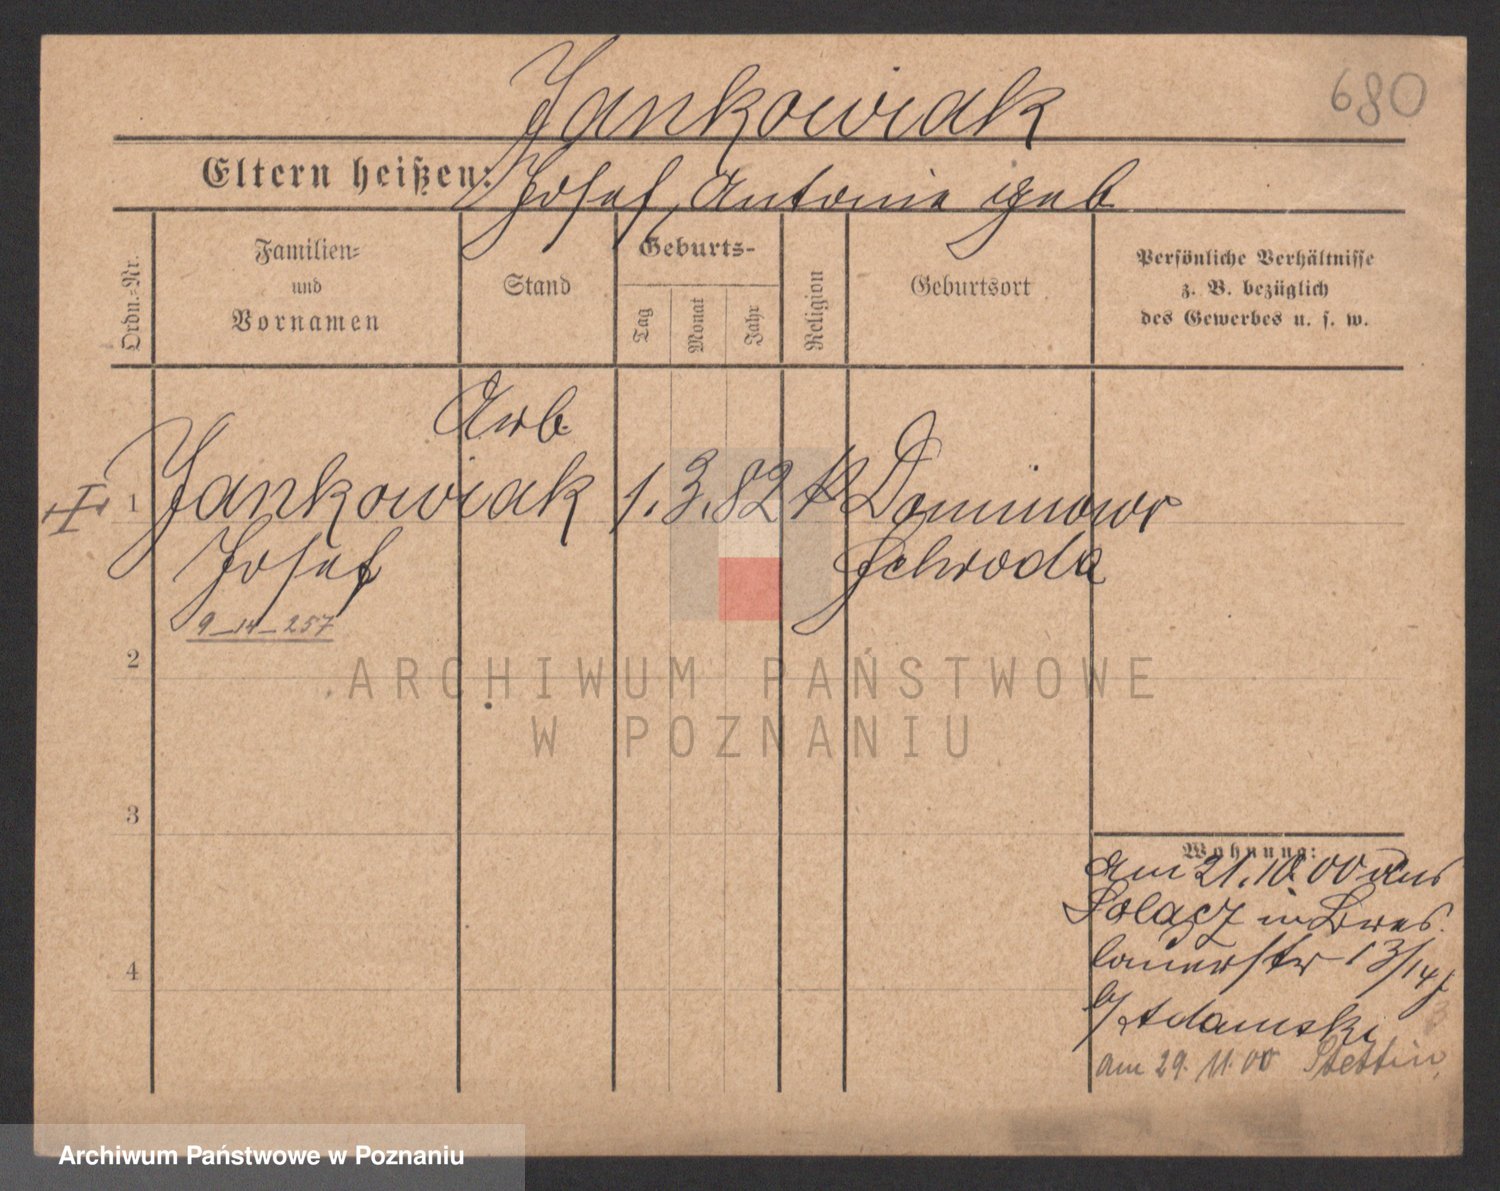 Jankowiak
680
Eltern heißen: Josef, Antonie geb
Ordn.-Nr.
Familien-
und
Vornamen
Stand
Geburts-
Tag
Monat
Jahr
Religion
Geburtsort
Persönliche Verhältnisse
z. B. bezüglich
des Gewerbes u. s. w.
Arb.
1 Jankowiak 1.3.82 k Dominowo
Josef Schroda
9-14-257
2
ARCHIWUM PAŃSTWOWE
W POZNANIU
3
4
Wohnung:
am 21.10.00 aus
Solacz in Bres
lauerstr 13/14
b/ Adamski
am 29.11.00 Stettin
Archiwum Państwowe w Poznaniu